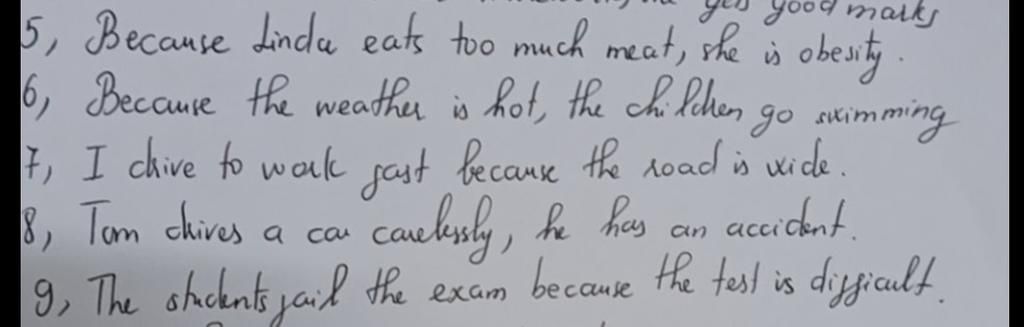 gets good marks
5, Because Linda eats too much meat, she is obesity.
6, Because the weather is hot, the children go swimming
7, I drive to work fast because the road is wide.
8, Tom drives a car carelessly, he has an accident.
9, The students fail the exam because the test is difficult.